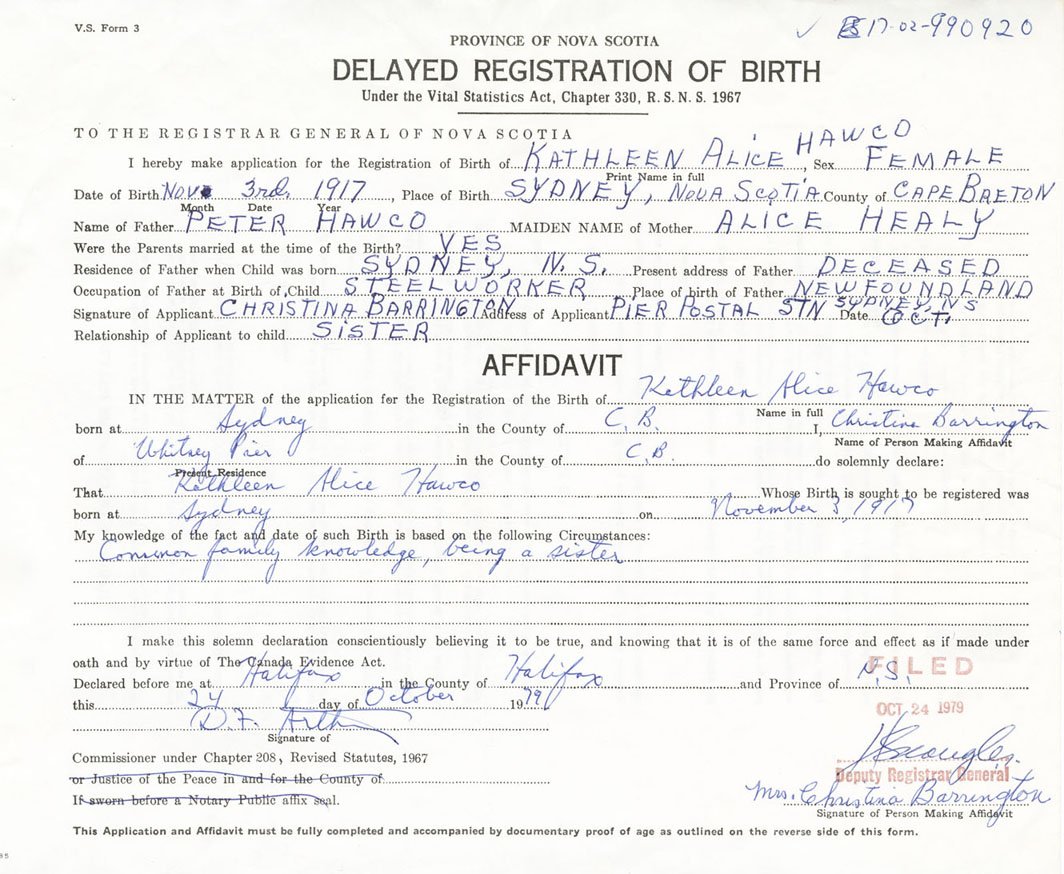 V.S. Form 3
✓ 17-02-990920
PROVINCE OF NOVA SCOTIA
DELAYED REGISTRATION OF BIRTH
Under the Vital Statistics Act, Chapter 330, R. S. N. S. 1967
TO THE REGISTRAR GENERAL OF NOVA SCOTIA
I hereby make application for the Registration of Birth of KATHLEEN ALICE HAWCO, Sex FEMALE
Print Name in full
Date of Birth Nov. 3rd, 1917, Place of Birth SYDNEY, NOVA SCOTIA County of CAPE BRETON
Month Date Year
Name of Father PETER HAWCO MAIDEN NAME of Mother ALICE HEALY
Were the Parents married at the time of the Birth? YES
Residence of Father when Child was born SYDNEY, N.S. Present address of Father DECEASED
Occupation of Father at Birth of Child STEELWORKER Place of birth of Father NEWFOUNDLAND
Signature of Applicant CHRISTINA BARRINGTON Address of Applicant PIER POSTAL STN SYDNEY, NS Date OCT.
Relationship of Applicant to child SISTER
AFFIDAVIT
IN THE MATTER of the application for the Registration of the Birth of Kathleen Alice Hawco
Name in full
born at Sydney in the County of C.B. I, Christina Barrington
Name of Person Making Affidavit
of Whitney Pier in the County of C.B. do solemnly declare:
Present Residence
That Kathleen Alice Hawco Whose Birth is sought to be registered was
born at Sydney on November 3, 1917
My knowledge of the fact and date of such Birth is based on the following Circumstances:
Common family knowledge, being a sister
I make this solemn declaration conscientiously believing it to be true, and knowing that it is of the same force and effect as if made under
oath and by virtue of The Canada Evidence Act.
FILED
Declared before me at Halifax in the County of Halifax and Province of N.S.
this 24 day of October 1979
OCT 24 1979
D.F.
Signature of
Commissioner under Chapter 208, Revised Statutes, 1967
or Justice of the Peace in and for the County of
Deputy Registrar General
If sworn before a Notary Public affix seal.
Mrs. Christina Barrington
Signature of Person Making Affidavit
This Application and Affidavit must be fully completed and accompanied by documentary proof of age as outlined on the reverse side of this form.